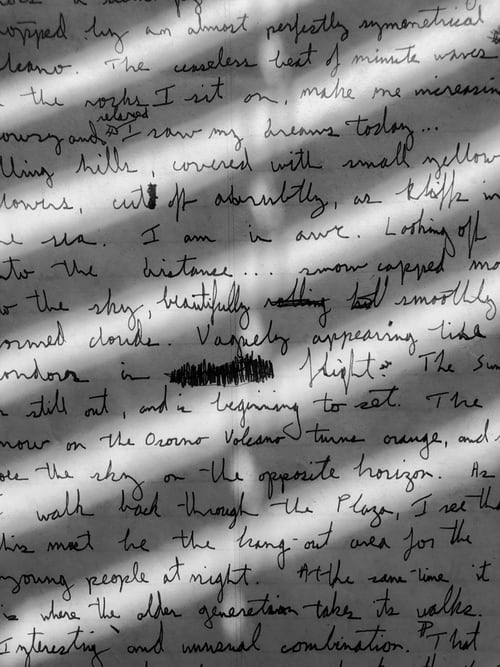 topped by an almost perfectly symmetrical
lcano. The ceaseless beat of minute waves
the rocks I sit on, make me increasin
relaxed
owsy and I saw my dreams today...
lling hills, covered with small yellow
lowers, cut off abrubtly, as kliffs in
he sea. I am in awe. Looking off
nto the distance... snow capped mo
o the sky, beautifully smoothly
ormed clouds. Vaguely appearing like
ondors in flight. The Sun
s still out, and is beginning to set. The
now on the Osorno Volcano turns orange, and s
oes the sky on the opposite horizon. As
I walk back through the Plaza, I see tha
his must be the hang-out area for the
young people at night. At the same time, it
is where the older generation takes its walks.
Interesting and unusual combination. That